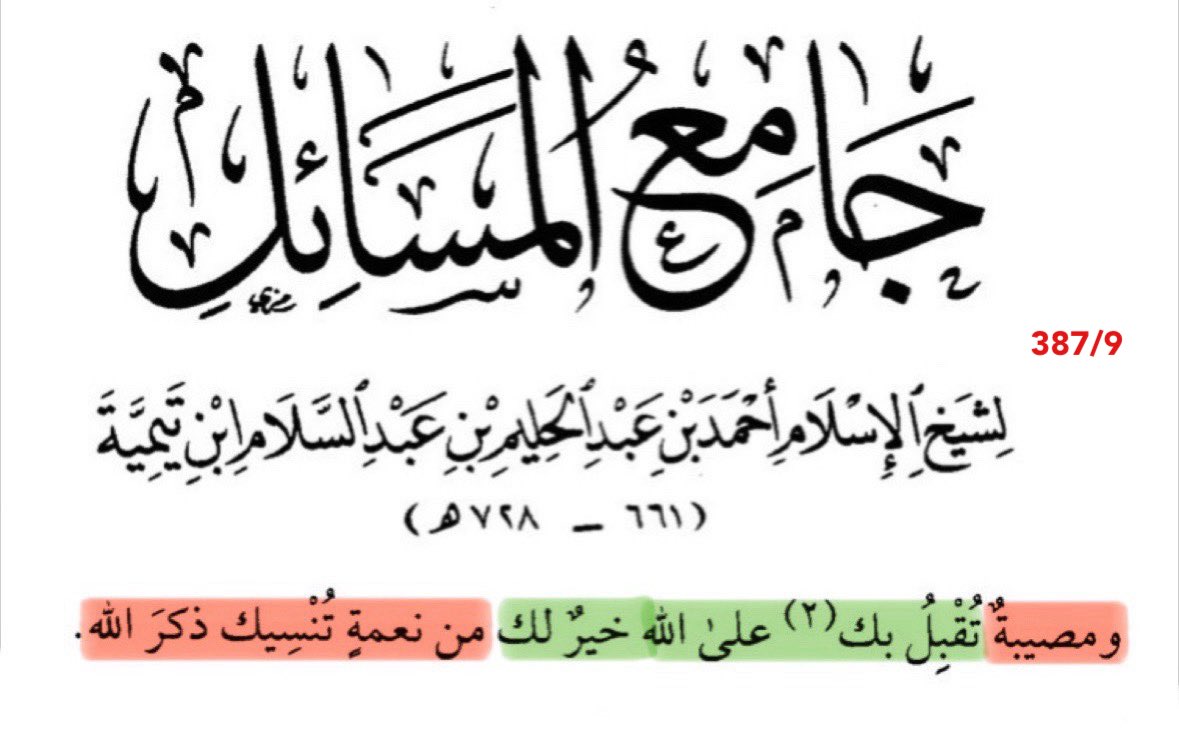 جَامِعُ المَسَائِلِ
387/9
لِشَيْخِ ٱلإِسْلَامِ أَحْمَدَ بْنِ عَبْدِ ٱلْحَلِيمِ بْنِ عَبْدِ ٱلسَّلَامِ ابْنِ تَيْمِيَّةَ
(٦٦١ – ٧٢٨ هـ)
ومصيبةٌ تُقْبِلُ بك(٢) علىٰ الله خيرٌ لك من نعمةٍ تُنْسِيك ذكرَ الله.